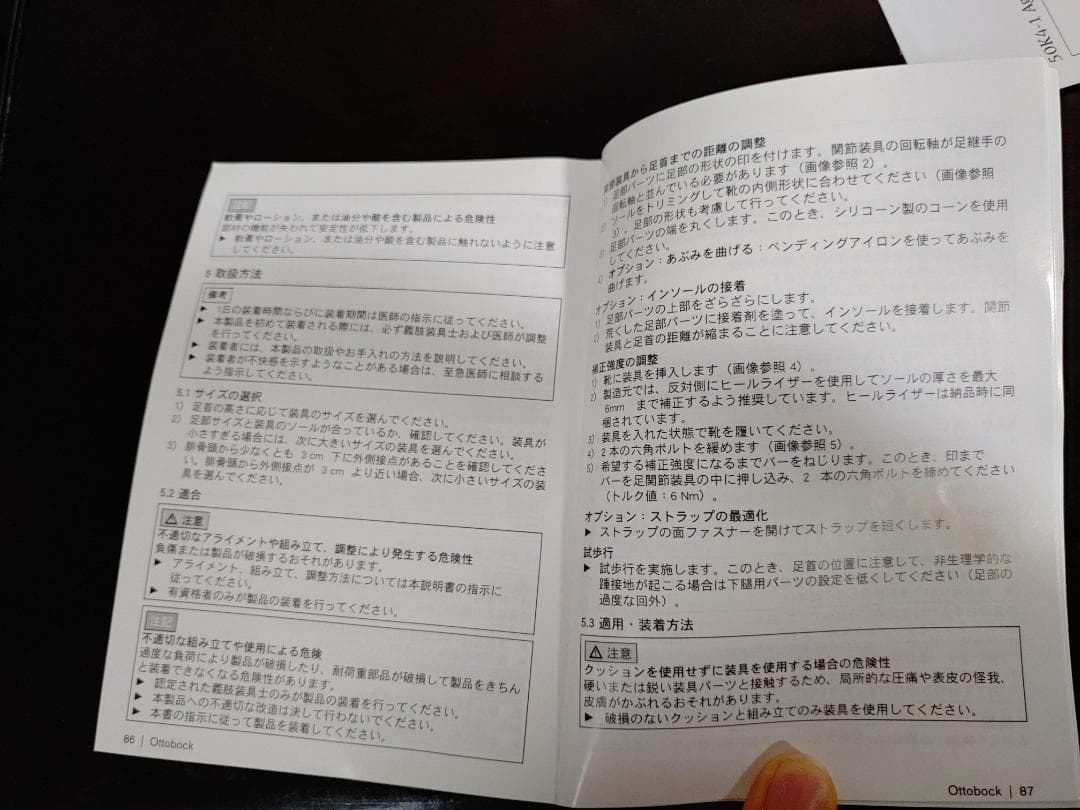 注記
軟膏やローション、または油分や酸を含む製品による危険性
部材の機能が失われて安定性が低下します。
▶ 軟膏やローション、または油分や酸を含む製品に触れないように注意
してください。
5 取扱方法
備考
▶ 1日の装着時間ならびに装着期間は医師の指示に従ってください。
▶ 本製品を初めて装着される際には、必ず義肢装具士および医師が調整
を行ってください。
▶ 装着者には、本製品の取扱やお手入れの方法を説明してください。
▶ 装着者が不快感を示すようなことがある場合は、至急医師に相談する
よう指示してください。
5.1 サイズの選択
1) 足首の高さに応じて装具のサイズを選んでください。
2) 足部サイズと装具のソールが合っているか、確認してください。装具が
小さすぎる場合には、次に大きいサイズの装具を選んでください。
3) 腓骨頭から少なくとも 3 cm 下に外側接点があることを確認してくださ
い。腓骨頭から外側接点が 3 cm より近い場合、次に小さいサイズの装
具を選んでください。
5.2 適合
⚠ 注意
不適切なアライメントや組み立て、調整により発生する危険性
負傷または製品が破損するおそれがあります。
▶ アライメント、組み立て、調整方法については本説明書の指示に
従ってください。
▶ 有資格者のみが製品の装着を行ってください。
注記
不適切な組み立てや使用による危険
過度な負荷により製品が破損したり、耐荷重部品が破損して製品をきちん
と装着できなくなる危険性があります。
▶ 認定された義肢装具士のみが製品の装着を行ってください。
▶ 本製品への不適切な改造は決して行わないでください。
▶ 本書の指示に従って製品を装着してください。
86 | Ottobock
50K4-1 Ag
装具から足首までの距離の調整
1) 足部パーツに足部の形状の印を付けます。関節装具の回転軸が足継手の
回転軸と並んでいる必要があります（画像参照 2）。
2) ソールをトリミングして靴の内側形状に合わせてください（画像参照
3）。足部の形状も考慮して行ってください。
3) 足部パーツの端を丸くします。このとき、シリコーン製のコーンを使用
してください。
4) オプション：あぶみを曲げる：ベンディングアイロンを使ってあぶみを
曲げます。
オプション：インソールの接着
1) 足部パーツの上部をざらざらにします。
2) 荒くした足部パーツに接着剤を塗って、インソールを接着します。関節
装具と足首の距離が縮まることに注意してください。
補正強度の調整
1) 靴に装具を挿入します（画像参照 4）。
2) 製造元では、反対側にヒールライザーを使用してソールの厚さを最大
6mm まで補正するよう推奨しています。ヒールライザーは納品時に同
梱されています。
3) 装具を入れた状態で靴を履いてください。
4) 2 本の六角ボルトを緩めます（画像参照 5）。
5) 希望する補正強度になるまでバーをねじります。このとき、印まで
バーを足関節装具の中に押し込み、2 本の六角ボルトを締めてください
（トルク値：6 Nm）。
オプション：ストラップの最適化
▶ ストラップの面ファスナーを開けてストラップを短くします。
試歩行
▶ 試歩行を実施します。このとき、足首の位置に注意して、非生理学的な
踵接地が起こる場合は下腿用パーツの設定を低くしてください（足部の
過度な回外）。
5.3 適用・装着方法
⚠ 注意
クッションを使用せずに装具を使用する場合の危険性
硬いまたは鋭い装具パーツと接触するため、局所的な圧痛や表皮の怪我、
皮膚がかぶれるおそれがあります。
▶ 破損のないクッションと組み立てのみ装具を使用してください。
Ottobock | 87